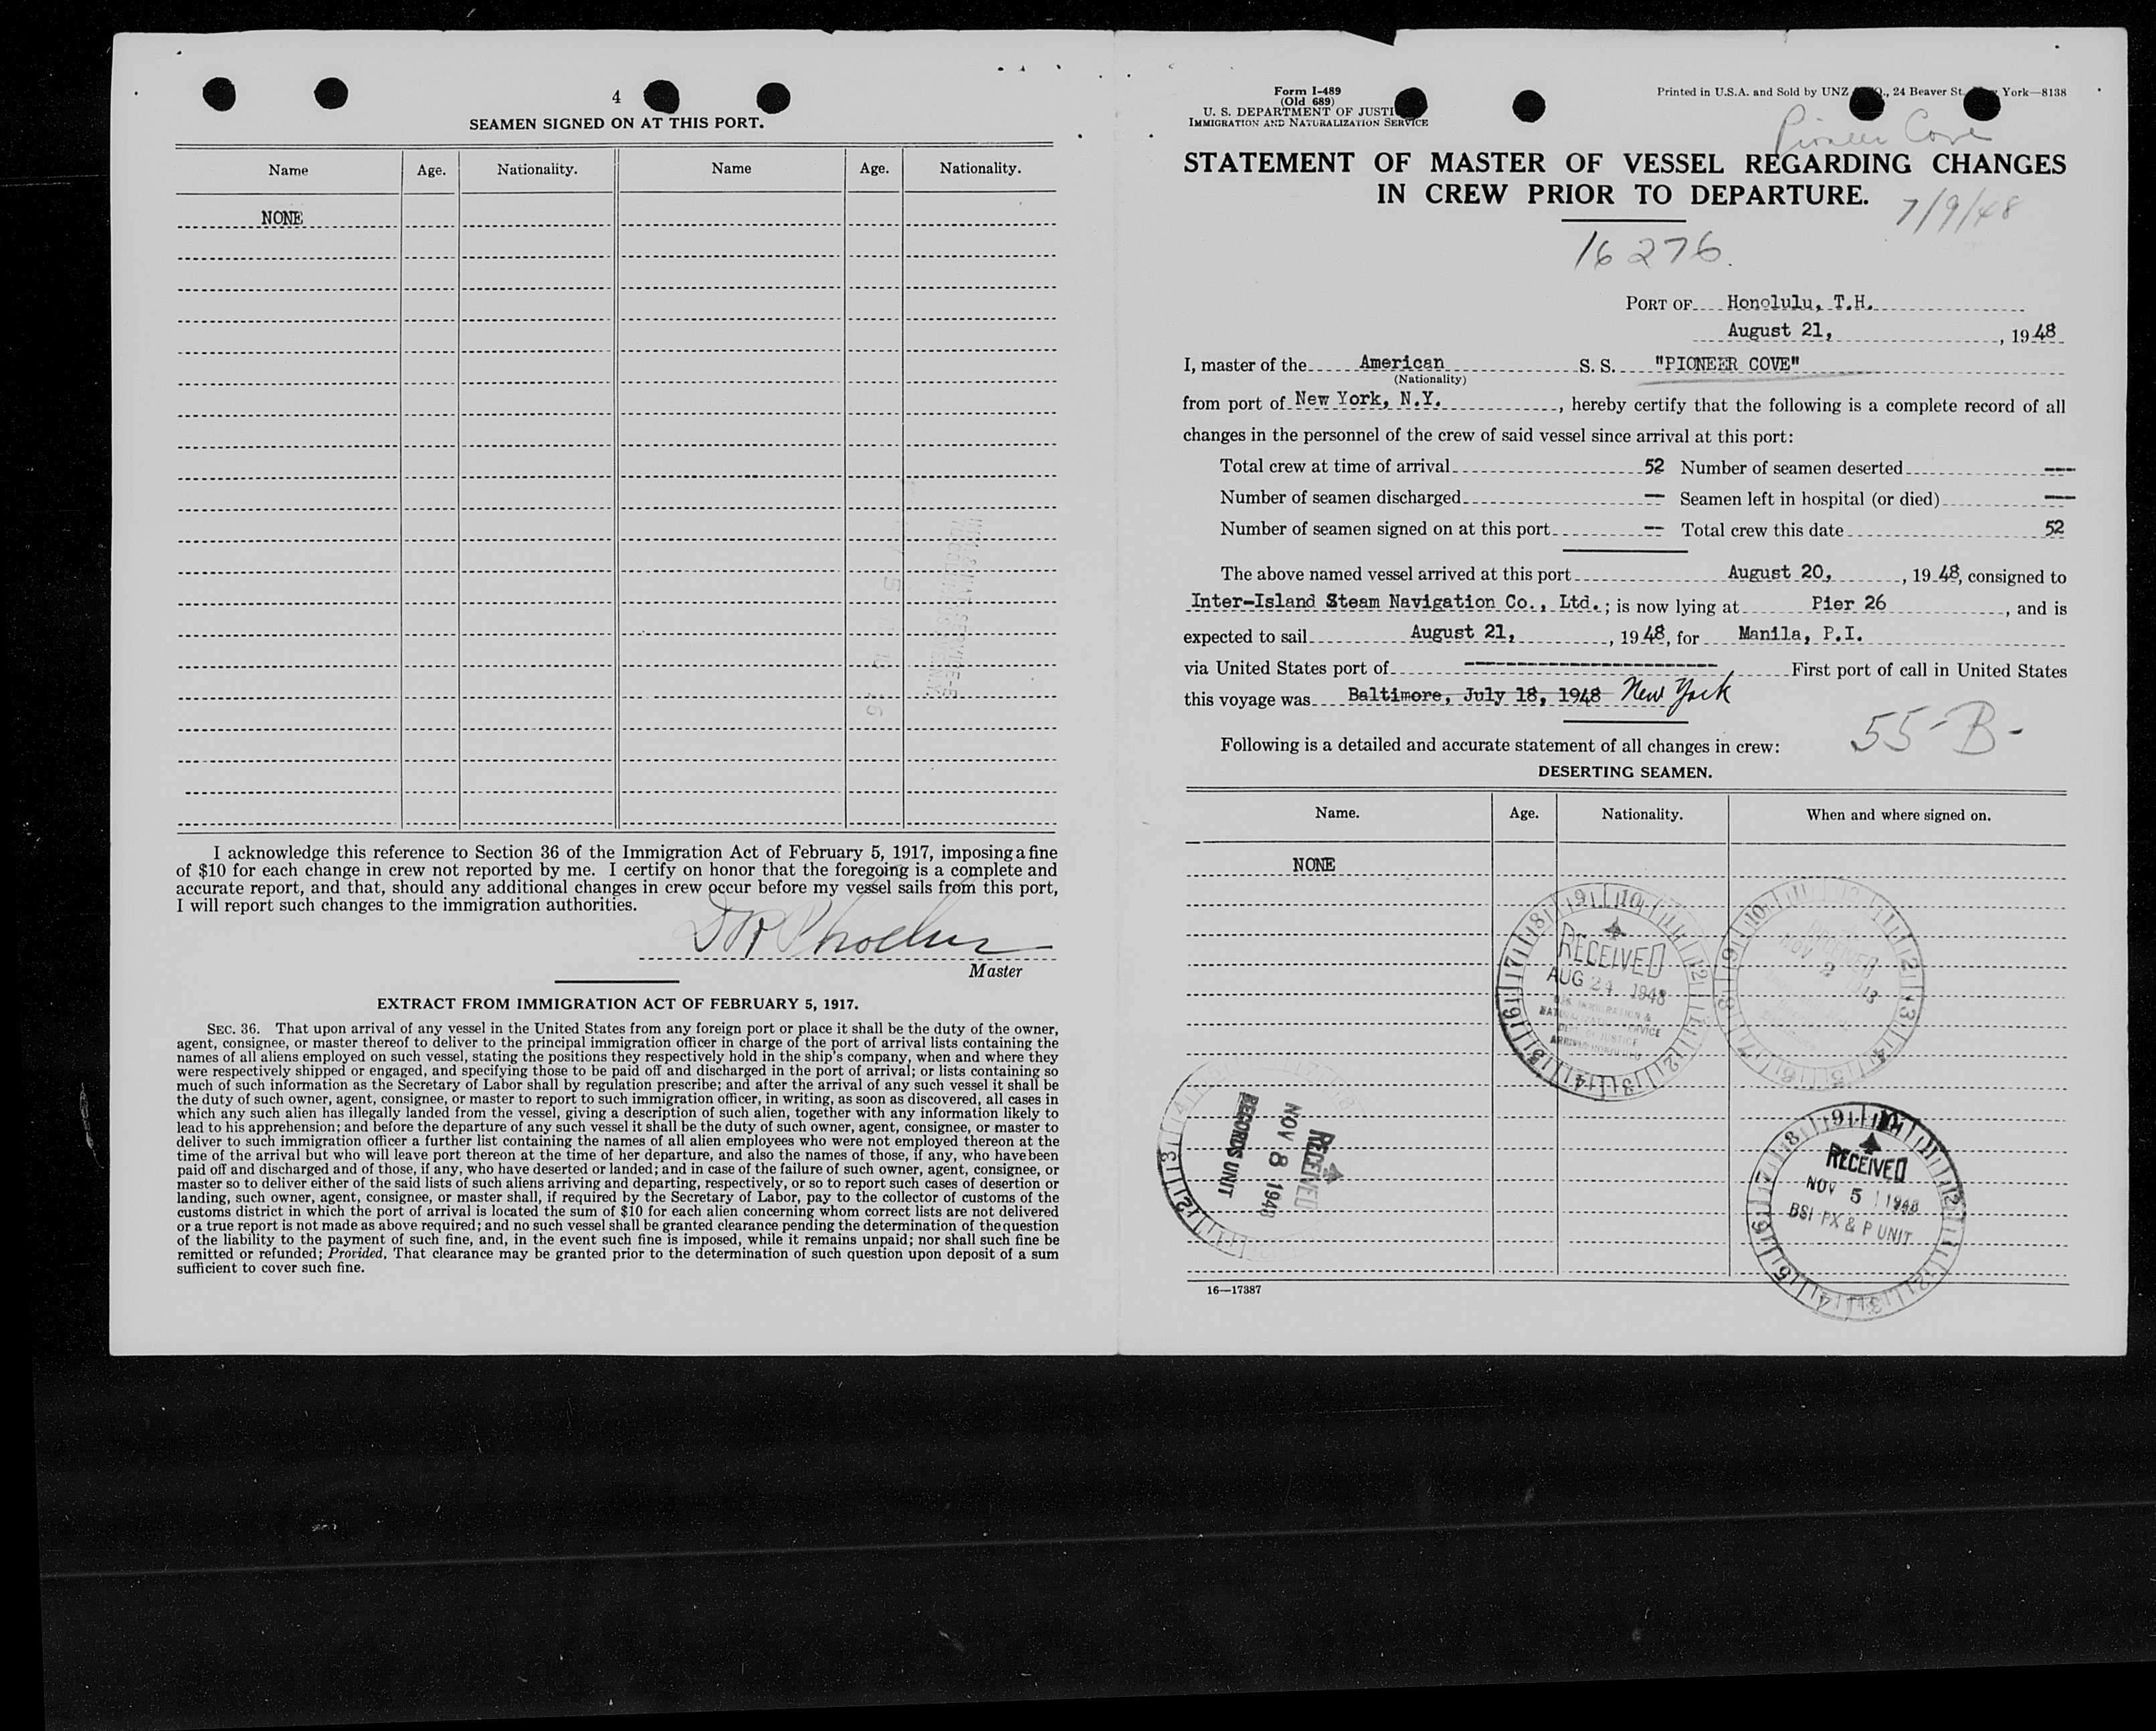 4
SEAMEN SIGNED ON AT THIS PORT.
Name Age. Nationality. Name Age. Nationality.
NONE
I acknowledge this reference to Section 36 of the Immigration Act of February 5, 1917, imposing a fine
of $10 for each change in crew not reported by me. I certify on honor that the foregoing is a complete and
accurate report, and that, should any additional changes in crew occur before my vessel sails from this port,
I will report such changes to the immigration authorities.
Master
EXTRACT FROM IMMIGRATION ACT OF FEBRUARY 5, 1917.
SEC. 36. That upon arrival of any vessel in the United States from any foreign port or place it shall be the duty of the owner,
agent, consignee, or master thereof to deliver to the principal immigration officer in charge of the port of arrival lists containing the
names of all aliens employed on such vessel, stating the positions they respectively hold in the ship's company, when and where they
were respectively shipped or engaged, and specifying those to be paid off and discharged in the port of arrival; or lists containing so
much of such information as the Secretary of Labor shall by regulation prescribe; and after the arrival of any such vessel it shall be
the duty of such owner, agent, consignee, or master to report to such immigration officer, in writing, as soon as discovered, all cases in
which any such alien has illegally landed from the vessel, giving a description of such alien, together with any information likely to
lead to his apprehension; and before the departure of any such vessel it shall be the duty of such owner, agent, consignee, or master to
deliver to such immigration officer a further list containing the names of all alien employees who were not employed thereon at the
time of the arrival but who will leave port thereon at the time of her departure, and also the names of those, if any, who have been
paid off and discharged and of those, if any, who have deserted or landed; and in case of the failure of such owner, agent, consignee, or
master so to deliver either of the said lists of such aliens arriving and departing, respectively, or so to report such cases of desertion or
landing, such owner, agent, consignee, or master shall, if required by the Secretary of Labor, pay to the collector of customs of the
customs district in which the port of arrival is located the sum of $10 for each alien concerning whom correct lists are not delivered
or a true report is not made as above required; and no such vessel shall be granted clearance pending the determination of the question
of the liability to the payment of such fine, and, in the event such fine is imposed, while it remains unpaid; nor shall such fine be
remitted or refunded; Provided, That clearance may be granted prior to the determination of such question upon deposit of a sum
sufficient to cover such fine.
Form I-489
(Old 689)
U. S. DEPARTMENT OF JUSTI
IMMIGRATION AND NATURALIZATION SERVICE
Printed in U.S.A. and Sold by UNZ 24 Beaver St. York—8138
Pioneer Cove
STATEMENT OF MASTER OF VESSEL REGARDING CHANGES
IN CREW PRIOR TO DEPARTURE.
7/9/48
16276.
PORT OF Honolulu, T.H.
August 21, , 1948
I, master of the American S. S. "PIONEER COVE"
(Nationality)
from port of New York, N.Y. , hereby certify that the following is a complete record of all
changes in the personnel of the crew of said vessel since arrival at this port:
Total crew at time of arrival 52 Number of seamen deserted ---
Number of seamen discharged -- Seamen left in hospital (or died) ---
Number of seamen signed on at this port -- Total crew this date 52
The above named vessel arrived at this port August 20, , 1948, consigned to
Inter-Island Steam Navigation Co., Ltd. ; is now lying at Pier 26 , and is
expected to sail August 21, , 1948, for Manila, P.I.
via United States port of -------------------- First port of call in United States
this voyage was Baltimore, July 18, 1948 New York
55-B-
Following is a detailed and accurate statement of all changes in crew:
DESERTING SEAMEN.
Name. Age. Nationality. When and where signed on.
NONE
RECEIVED
AUG 24 1948
RECEIVED
NOV 2
RECEIVED
NOV 8 1948
RECORDS UNIT
RECEIVED
NOV 5 1948
BSI PX & P UNIT
16—17387